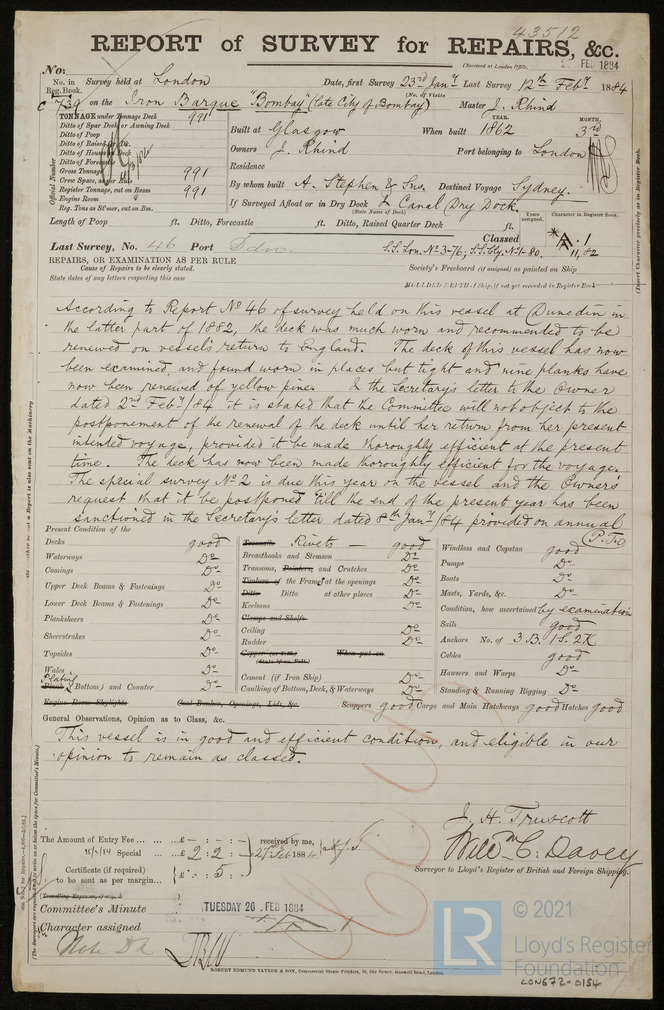 43512
REPORT of SURVEY for REPAIRS, &c.
(Received at London Office, FEB 1884
No.
No. in Reg. Book. Survey held at London Date, first Survey 23rd Jany Last Survey 12th Feby 1884
(No. of Visits
739 on the Iron Barque "Bombay" (late City of Bombay) Master J. Rhind
TONNAGE under Tonnage Deck 991
Ditto of Spar Deck or Awning Deck
Ditto of Poop
Ditto of Raised Qr. Dk.
Ditto of House on Deck
Ditto of Forecastle
Gross Tonnage 991
Cross Space, as per Rule
Register Tonnage, cut on Beam 991
Engine Room
Reg. Tons as St'mer, cut on Bm.
Official Number
Built at Glasgow When built YEAR. 1862 MONTH. 3rd
Owners J. Rhind Port belonging to London
Residence
By whom built A. Stephen & Sons. Destined Voyage Sydney.
If Surveyed Afloat or in Dry Dock Canal Dry Dock.
(State Name of Dock)
Length of Poop ft. Ditto, Forecastle ft. Ditto, Raised Quarter Deck ft.
Years assigned. Character in Register Book.
Classed A.1
11,82
Last Survey, No. 46 Port Sdn. S.S. Lon. No 3-76; S.S. Sly. No 1-80.
REPAIRS, OR EXAMINATION AS PER RULE
Cause of Repairs to be clearly stated.
State dates of any letters respecting this case
Society's Freeboard (if assigned) as painted on Ship
MOULDED DEPTH of Ship, if not yet recorded in Register Book
(Insert Character precisely as in Register Book.
According to Report No 46 of survey held on this vessel at Dunedin in
the latter part of 1882, the deck was much worn and recommended to be
renewed on vessel's return to England. The deck of this vessel has now
been examined, and found worn in places but tight and nine planks have
now been renewed of yellow pine. In the Secretary's letter to the Owner
dated 2nd Feby/84 it is stated that the Committee will not object to the
postponement of the renewal of the deck until her return from her present
intended voyage, provided it be made thoroughly efficient at the present
time. The deck has now been made thoroughly efficient for the voyage.
The special survey No 2 is due this year on the vessel and the Owner's
request that it be postponed till the end of the present year has been
sanctioned in the Secretary's letter dated 8th Jany/84 provided on annual
(P.T.O)
Present Condition of the
Decks good
Waterways Do
Comings Do
Upper Deck Beams & Fastenings Do
Lower Deck Beams & Fastenings Do
Planksheers Do
Sheerstrakes Do
Topsides Do
Wales Do
Plating
Plank (Bottom) and Counter Do
Engine Room Skylights Coal Bunker, Openings, Lids, &c.
Treenails Rivets good
Breasthooks and Stemson Do
Transoms, Pointers, and Crutches Do
Timbers of the Frames at the openings Do
Ditto Ditto at other places Do
Keelsons Do
Clamps and Shelfs
Ceiling Do
Rudder Do
Copper (or Y.M.) When put on
(State if on Felt)
Cement (if Iron Ship) Do
Caulking of Bottom, Deck, & Waterways Do
Windlass and Capstan good
Pumps Do
Boats Do
Masts, Yards, &c. Do
Condition, how ascertained by examination
Sails good
Anchors No. of 3 B. 1 S. 2 K
Cables good
Hawsers and Warps Do
Standing & Running Rigging Do
Scuppers good Cargo and Main Hatchways good Hatches good
General Observations, Opinion as to Class, &c.
This vessel is in good and efficient condition, and eligible in our
opinion to remain as classed.
J. H. Truscott
Willm C. Davey
Surveyor to Lloyd's Register of British and Foreign Shipping.
The Amount of Entry Fee £ - : - : - received by me,
Special £ 2 : 2 : -
Certificate (if required) £ : 5 :
to be sent as per margin
(Travelling Expenses, if any, £
Committee's Minute TUESDAY 26 FEB 1884
Character assigned
Note Dk
ROBERT EDMUND TAYLOR & SON, Commercial Steam Printers, 19, Old Street, Goswell Road, London.
LR © 2021
Lloyd's Register
Foundation
LON672-0154